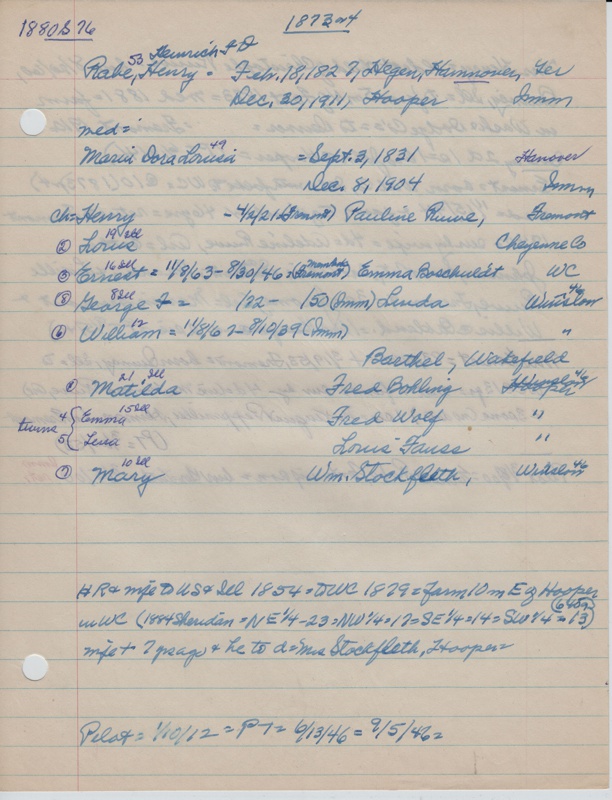 1880 S 76
1873-4
53 Heinrich F D
Rabe, Henry = Feb. 18, 1827, Hegen, Hannover, Ger
Dec. 30, 1911, Hooper Imm
med =
49
Maria Dora Louisa = Sept. 3, 1831 Hanover
Dec. 8, 1904 Imm
Ch = Henry - 4/2/21 (Fremont) Pauline Ruwe, Fremont
19 Ill
② Louis Cheyenne Co
16 Ill
③ Ernest = 11/8/63 - 8/30/46 = (Fremont) Emma Boschuldt WC
8 Ill
⑧ George F = /22 - /50 (Imm) Linda Winslow 46
12
⑥ William = 11/8/67 - 8/10/39 (Imm) "
Barthel, Wakefield
21 Ill
① Matilda Fred Bohling Hooper
15 Ill
twins 4 Emma Fred Wolf "
5 Lena Louis Fauss "
10 Ill
⑦ Mary Wm. Stockfleth, Winslow 46
HR & wife to US & Ill 1854 = to WC 1879 = farm 10 m E of Hooper
in WC (1884 Sheridan = NE 1/4 - 23 = NW 1/4 = 17 = SE 1/4 = 14 = SW 1/4 = 13)
wife + 7 yrs ago & he to d = Mrs Stockfleth, Hooper =
Pilot = 1/10/12 = PT = 6/13/46 = 9/5/46 =